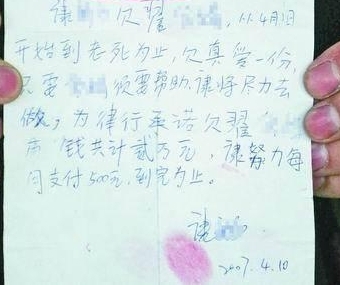 欠翟 ,从4月1日
开始到老死为止,欠真爱一份,
只要 须要帮助,谏将尽力去
做,为律行承诺欠翟
钱共计贰万元,谏努力每
月支付500元,到完为止。
2007.4.10